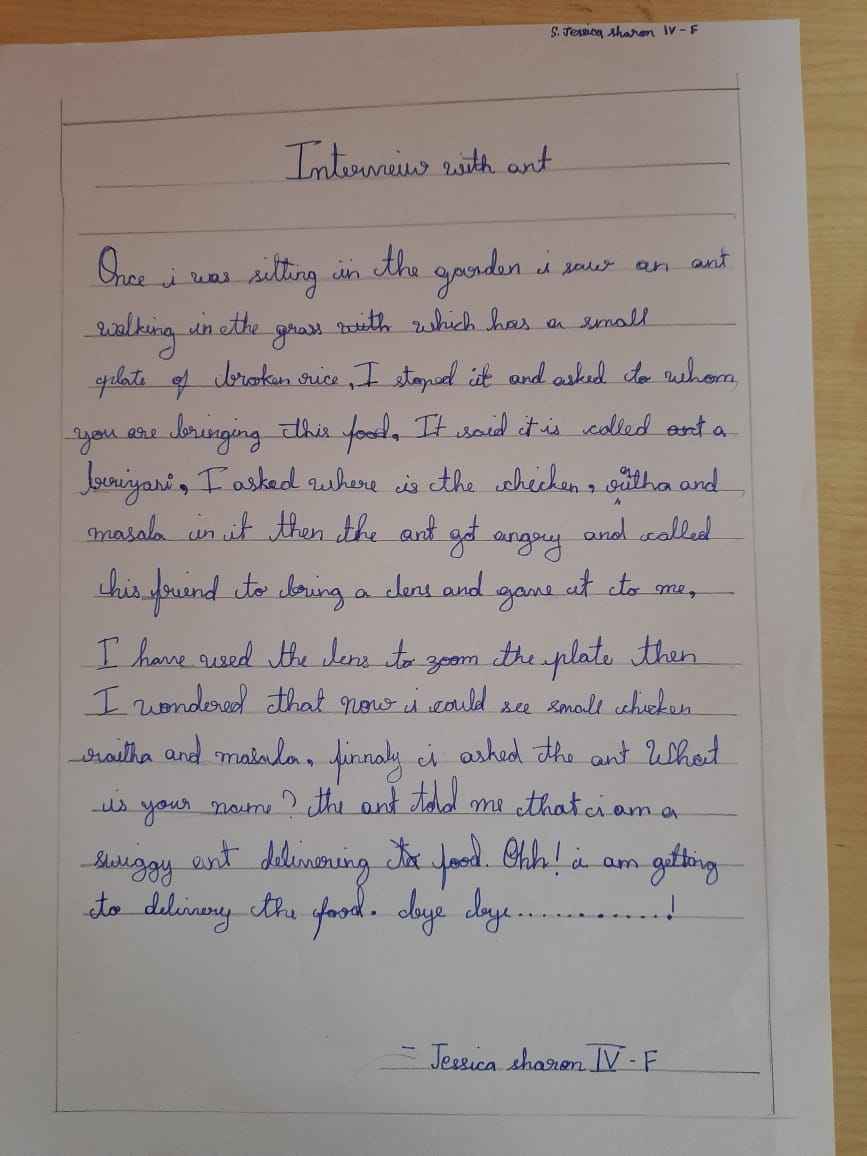 S. Jessica sharon IV - F
Interveiw with ant
Once i was sitting in the garden i saw an ant
walking in the grass with which has a small
plate of broken rice, I stoped it and asked to whom
you are bringing this food, It said it is called ant a
buriyani, I asked where is the chicken, raitha and
masala in it then the ant got angry and called
his friend to bring a lens and gave it to me,
I have used the lens to zoom the plate then
I wondered that now i could see small chicken
raitha and masala, finnaly i asked the ant What
is your name? the ant told me that i am a
swiggy ant delivering the food. Ohh! i am getting
to delivery the food. bye bye.............!
= Jessica sharon IV - F